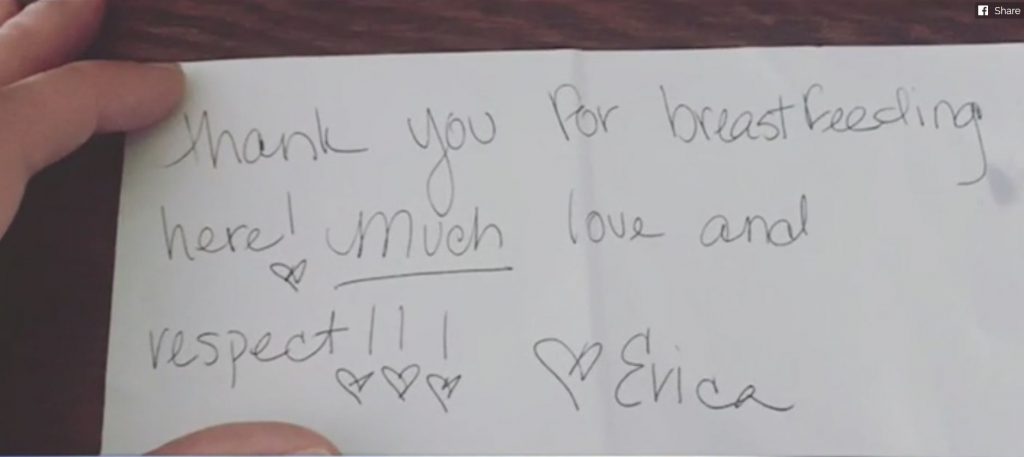 Share
Thank you for breastfeeding
here! much love and
respect!!! Erica